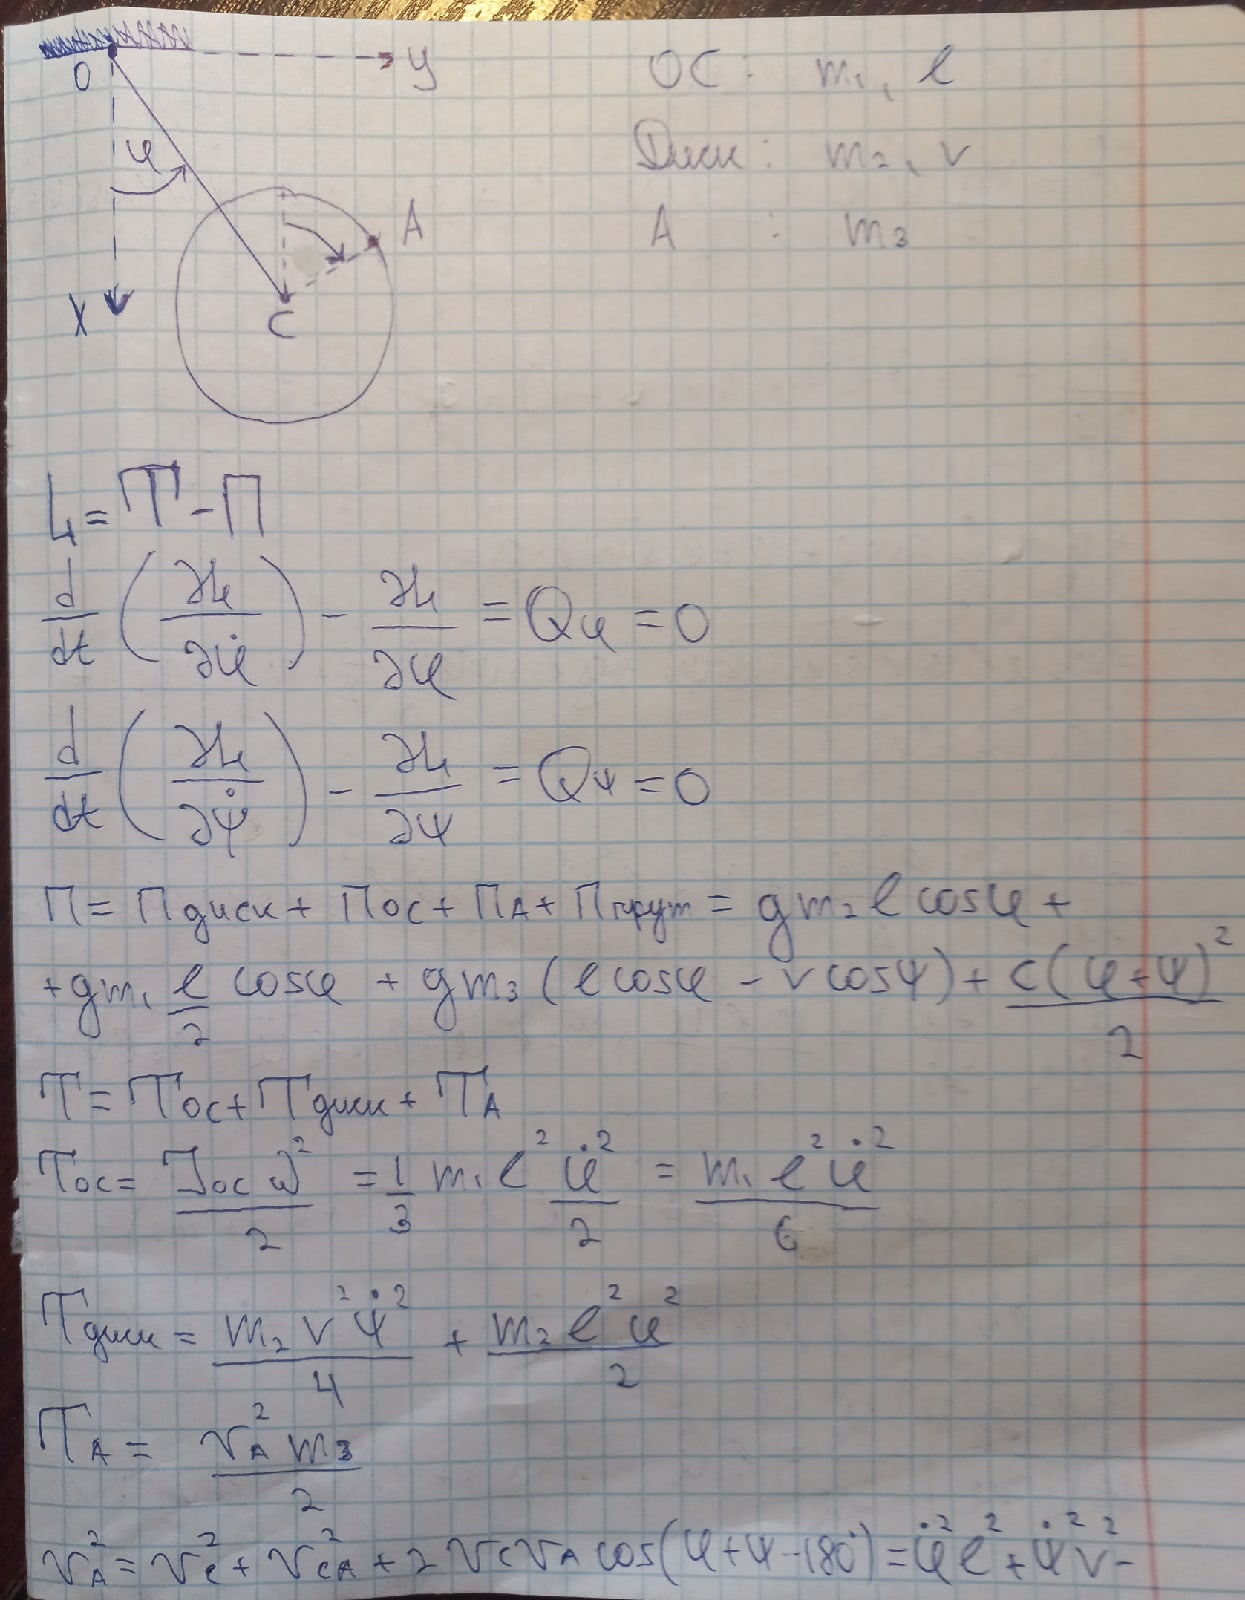 O
y
φ
A
X
C
OC : m₁, l
Диск : m₂, r
A : m₃
L = T - П
d/dt (∂L/∂φ̇) - ∂L/∂φ = Qφ = 0
d/dt (∂L/∂ψ̇) - ∂L/∂ψ = Qψ = 0
П = Пдиск + Пос + ПА + Ппруж = gm₂ l cosφ +
+ gm₁ l/2 cosφ + gm₃ (l cosφ - r cosψ) + c(φ+ψ)²/2
T = Tос + Tдиск + TА
Tос = Jос ω²/2 = 1/3 m₁ l² φ̇²/2 = m₁ l² φ̇²/6
Tдиск = m₂ r² ψ̇²/4 + m₂ l² φ²/2
TА = VА² m₃/2
VА² = Vc² + VcА² + 2 Vc VА cos(φ+ψ-180°) = φ̇² l² + ψ̇² r² -